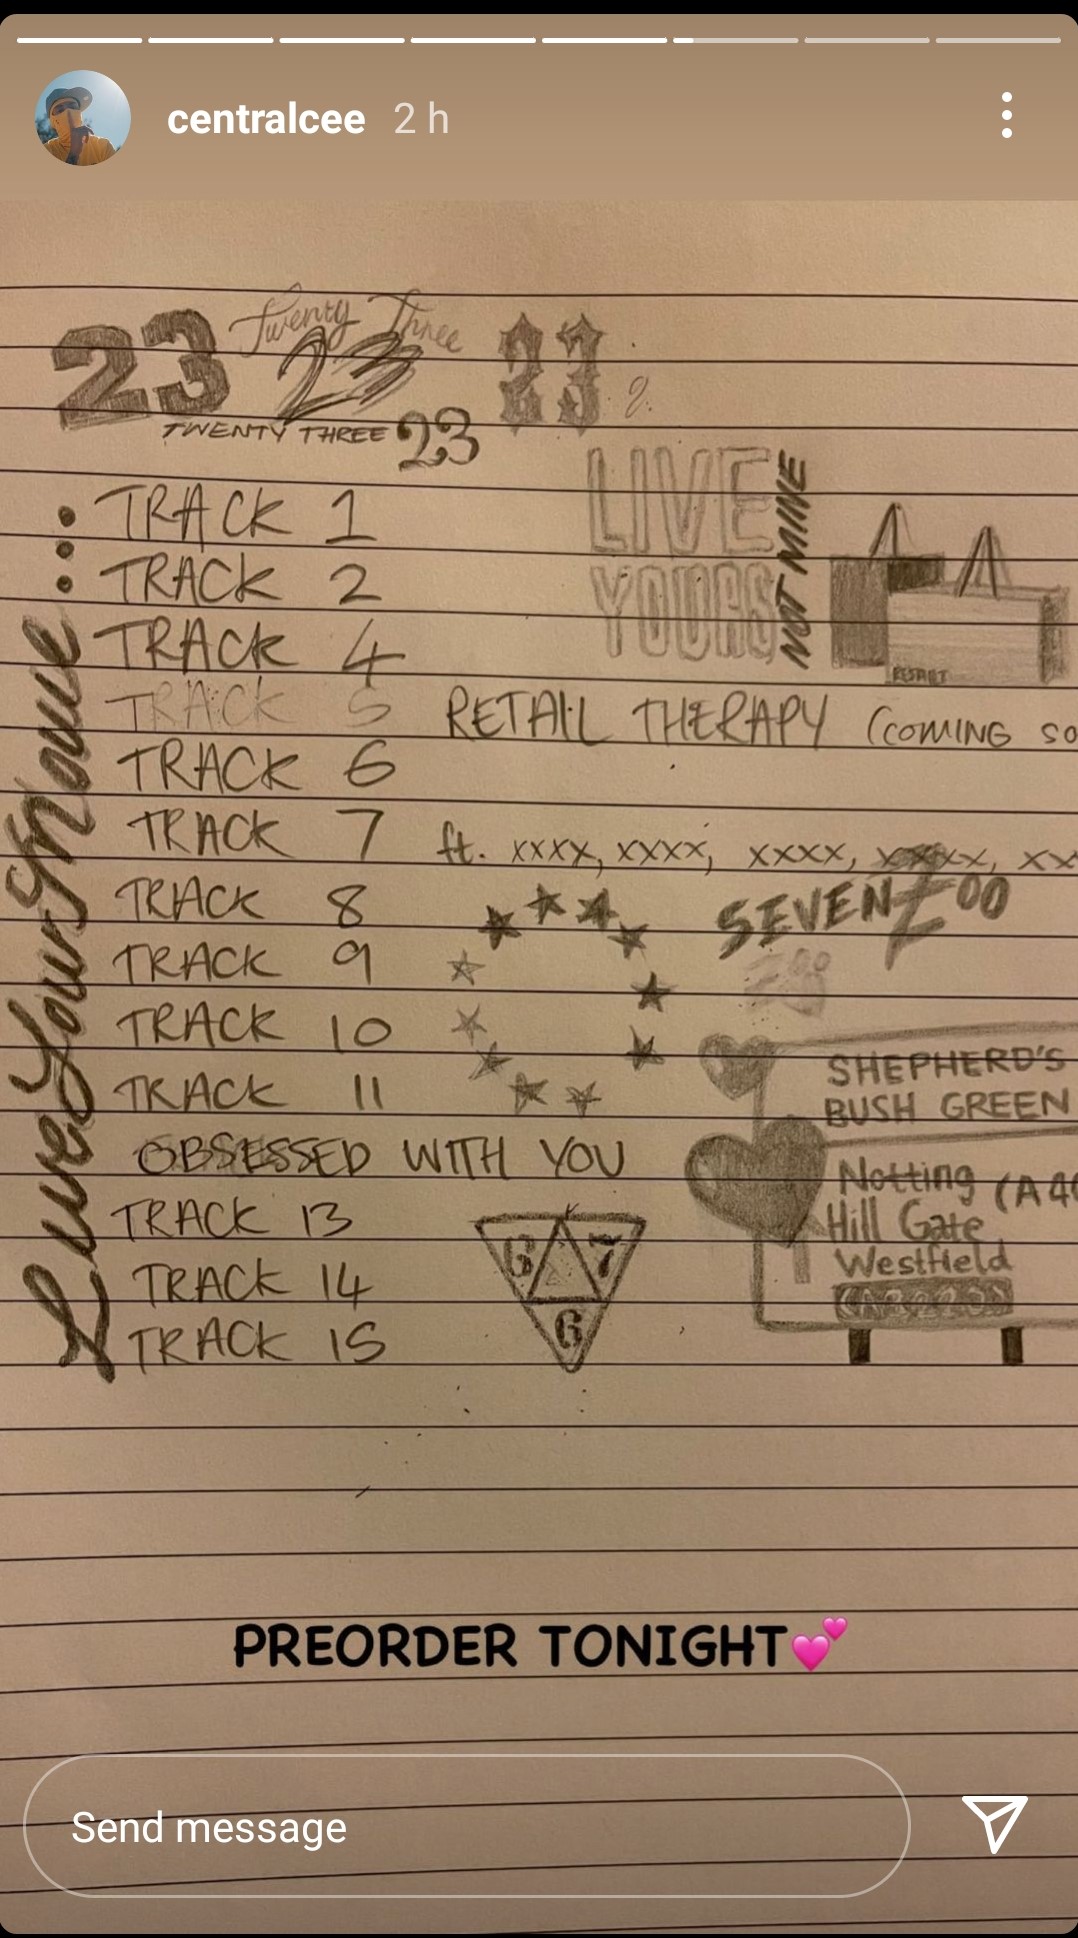 centralcee 2 h
Twenty Three
23 23 23
TWENTY THREE 23
LIVE
YOURS
NOT MINE
LiveYoursNotMine
TRACK 1
TRACK 2
TRACK 4
TRACK 5 RETAIL THERAPY (COMING SO
TRACK 6
TRACK 7 ft. xxxx, xxxx, xxxx, xxxx, xx
TRACK 8
SEVEN Zoo
TRACK 9
TRACK 10
TRACK 11
SHEPHERD'S
BUSH GREEN
OBSESSED WITH YOU
Notting (A4
Hill Gate
Westfield
TRACK 13
TRACK 14
TRACK 15
6 7
6
PREORDER TONIGHT💕
Send message